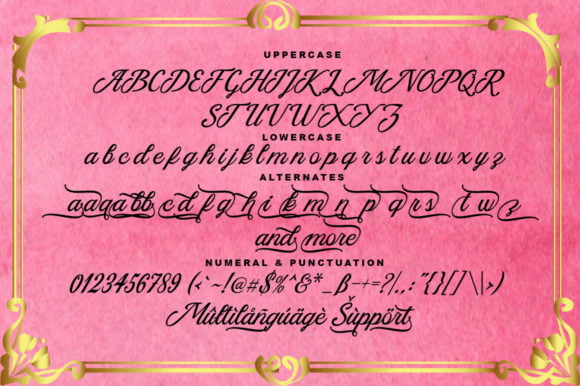 UPPERCASE
ABCDEFGHIJKLMNOPQR
STUVWXYZ
LOWERCASE
abcdefghijklmnopqrstuvwxyz
ALTERNATES
and more
NUMERAL & PUNCTUATION
0123456789 (‹`~!@#$%^&*_ß-+=?/,.:"{}[]\|›)
Mûltilåñgúägè Šùppõrt